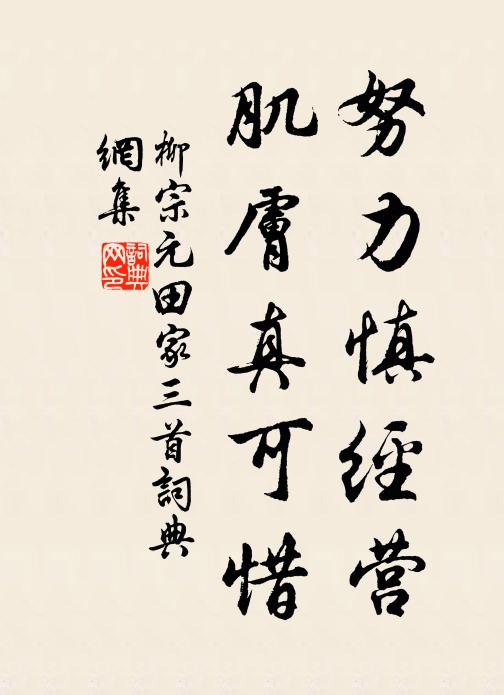 努力慎經营
肌膚真可惜
柳宗元田家三首詞典
網集
詞典网印